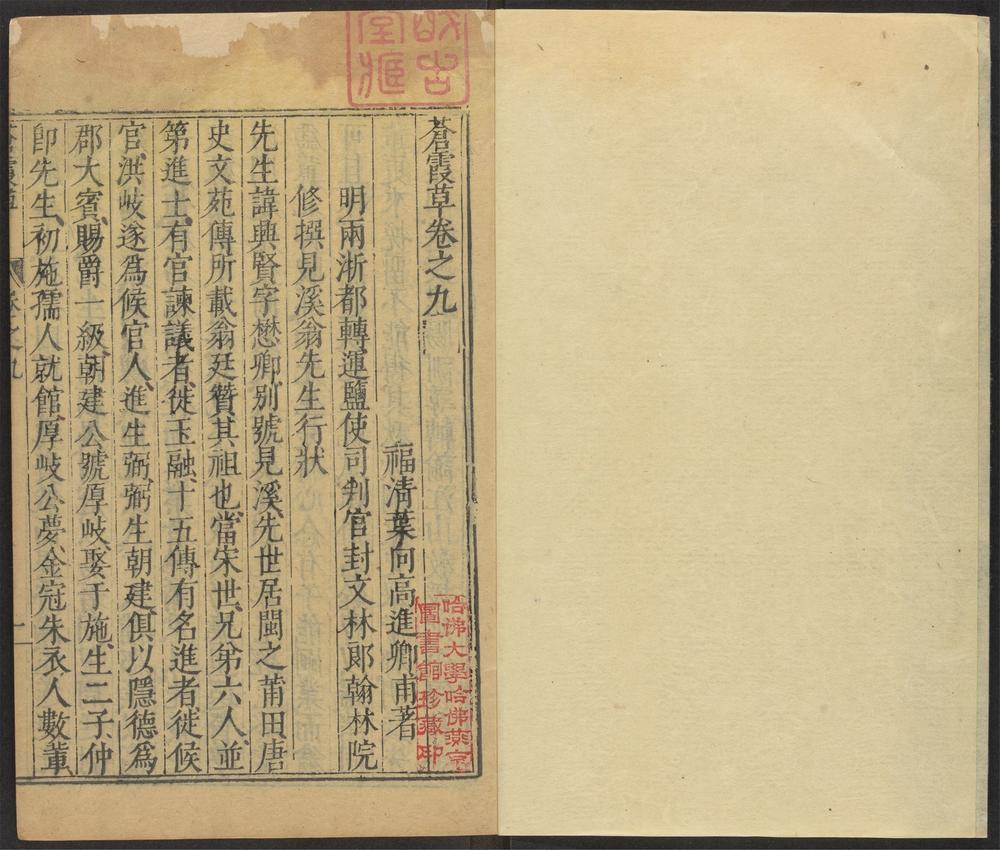 蒼霞草卷之九
福清葉向高進卿甫著
明兩浙都轉運鹽使司判官封文林郎翰林院
修撰見溪翁先生行狀
先生諱興賢字懋卿别號見溪先世居閩之莆田唐
史文苑傳所載翁廷贊其祖也當宋世兄弟六人並
第進士有官諫議者徙玉融十五傳有名進者徙候
官洪岐遂爲候官人進生弼弼生朝建俱以隱德爲
郡大賓賜爵一級朝建公號厚岐娶于施生二子仲
卽先生初施孺人就館厚岐公夢金冠朱衣人數輩
蒼霞草
卷之九
一
哈佛大學哈佛燕京
圖書館珍藏印